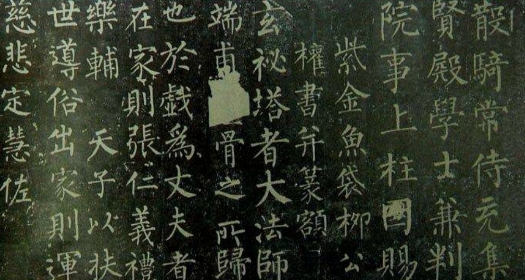 散騎常侍充集
賢殿學士兼判
院事上柱國賜
紫金魚袋柳公
權書并篆額
玄祕塔者大法師
端甫骨之所歸
也於戲為丈夫者
在家則張仁義禮
樂輔 天子以扶
世導俗出家則運
慈悲定慧佐